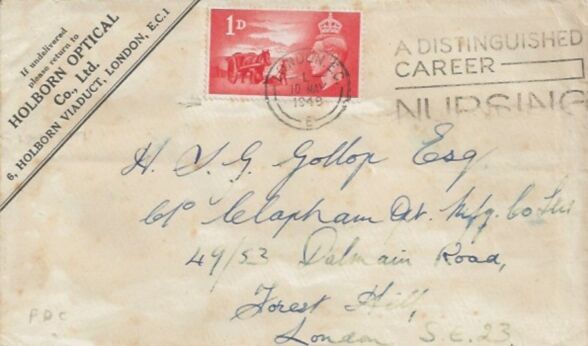 If undelivered
please return to
HOLBORN OPTICAL
Co., Ltd.
6, HOLBORN VIADUCT, LONDON, E.C.1
1D
LONDON, E.C.
10 MAY
1948
A DISTINGUISHED
CAREER
NURSING
H. J. G. Gollop Esq.
c/o Clapham Mfg. Co Ltd
49/53 Dalmain Road,
Forest Hill,
London S.E. 23.